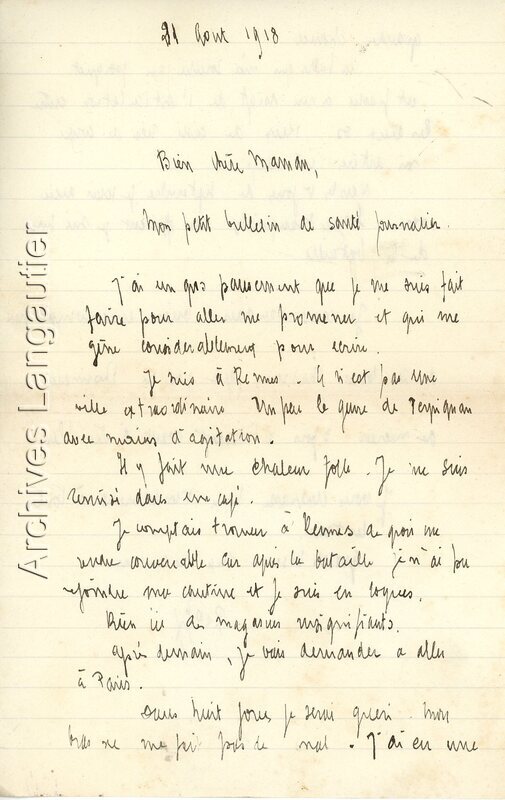 21 Aout 1918
Bien chère Maman,
Mon petit bulletin de santé journalier.
J'ai un gros pansement que je me suis fait
faire pour aller me promener et qui me
gêne considérablement pour écrire.
Je suis à Rennes. Ce n'est pas une
ville extraordinaire. Un peu le genre de Perpignan
avec moins d'agitation.
Il y fait une chaleur folle. Je me suis
remisé dans un café.
Je comptais trouver à Rennes de quoi me
rendre convenable car après la bataille je n'ai pu
rejoindre ma cantine et je suis en loques.
Rien ici des magasins insignifiants.
après demain, je vais demander a aller
à Paris.
dans huit jours je serai guéri. Mon
bras ne me fait pas de mal. J'ai eu une
Archives Langautier